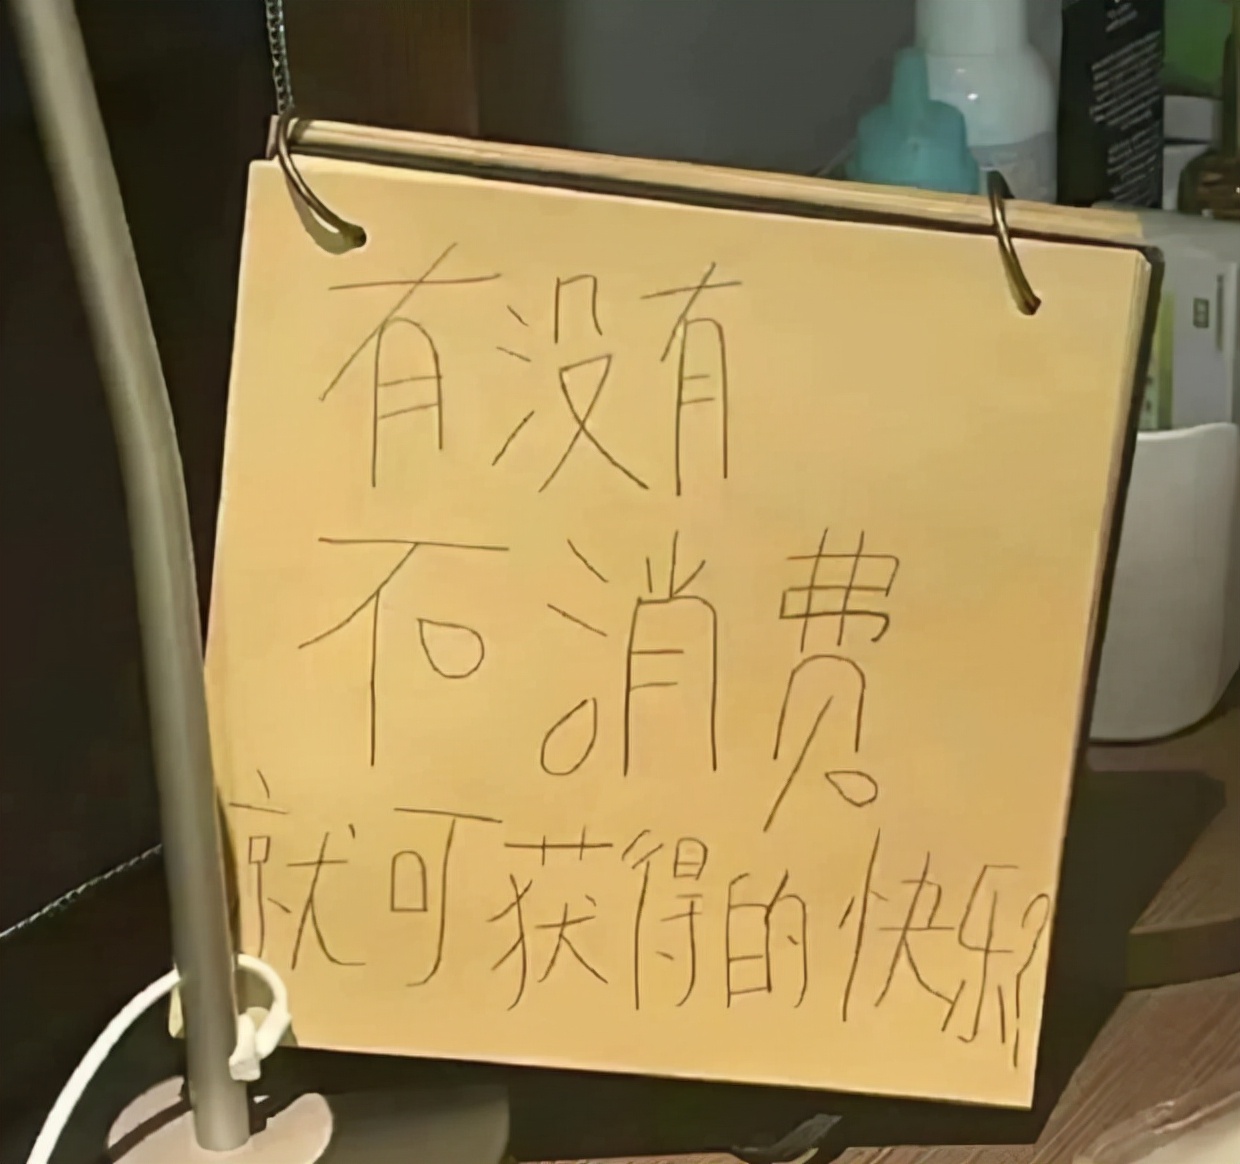 有没有
不消费
就可获得的快乐?